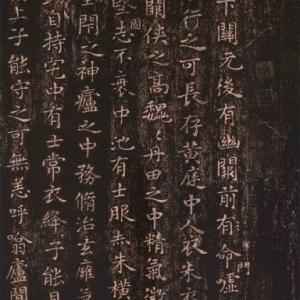 下關元後有幽闕前有命門噓
行之可長存黃庭中人衣朱衣
闕俠之高魏〻丹田之中精氣微
堅固志不衰中池有士服赤朱橫
閇之神廬之中務脩治玄雍氣
自持宅中有士常衣絳子能見
上子能守之可無恙呼噏廬間